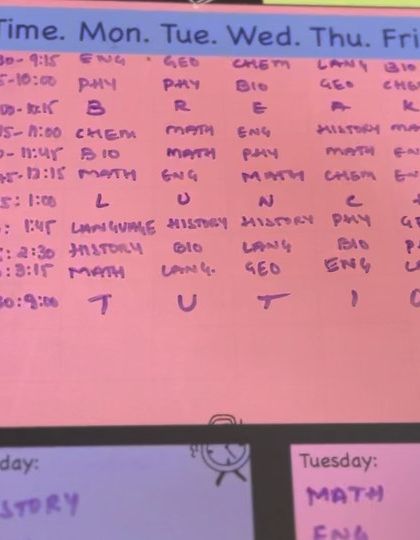 Time. Mon. Tue. Wed. Thu. Fri
30-9:15 ENG GEO CHEM LANG BIO
5-10:00 PHY PHY BIO GEO CHE
00-10:15 B R E A K
15-11:00 CHEM MATH ENG HISTORY MA
0-11:45 BIO MATH PHY MATH EN
45-12:15 MATH ENG MATH CHEM EN
5:1:00 L U N C
: 1:45 LANGUAGE HISTORY HISTORY PHY
: 2:30 HISTORY BIO LANG BIO P
: 3:15 MATH LANG. GEO ENG
30:9:00 T U T I O
day: Tuesday:
STORY MATH
ENG